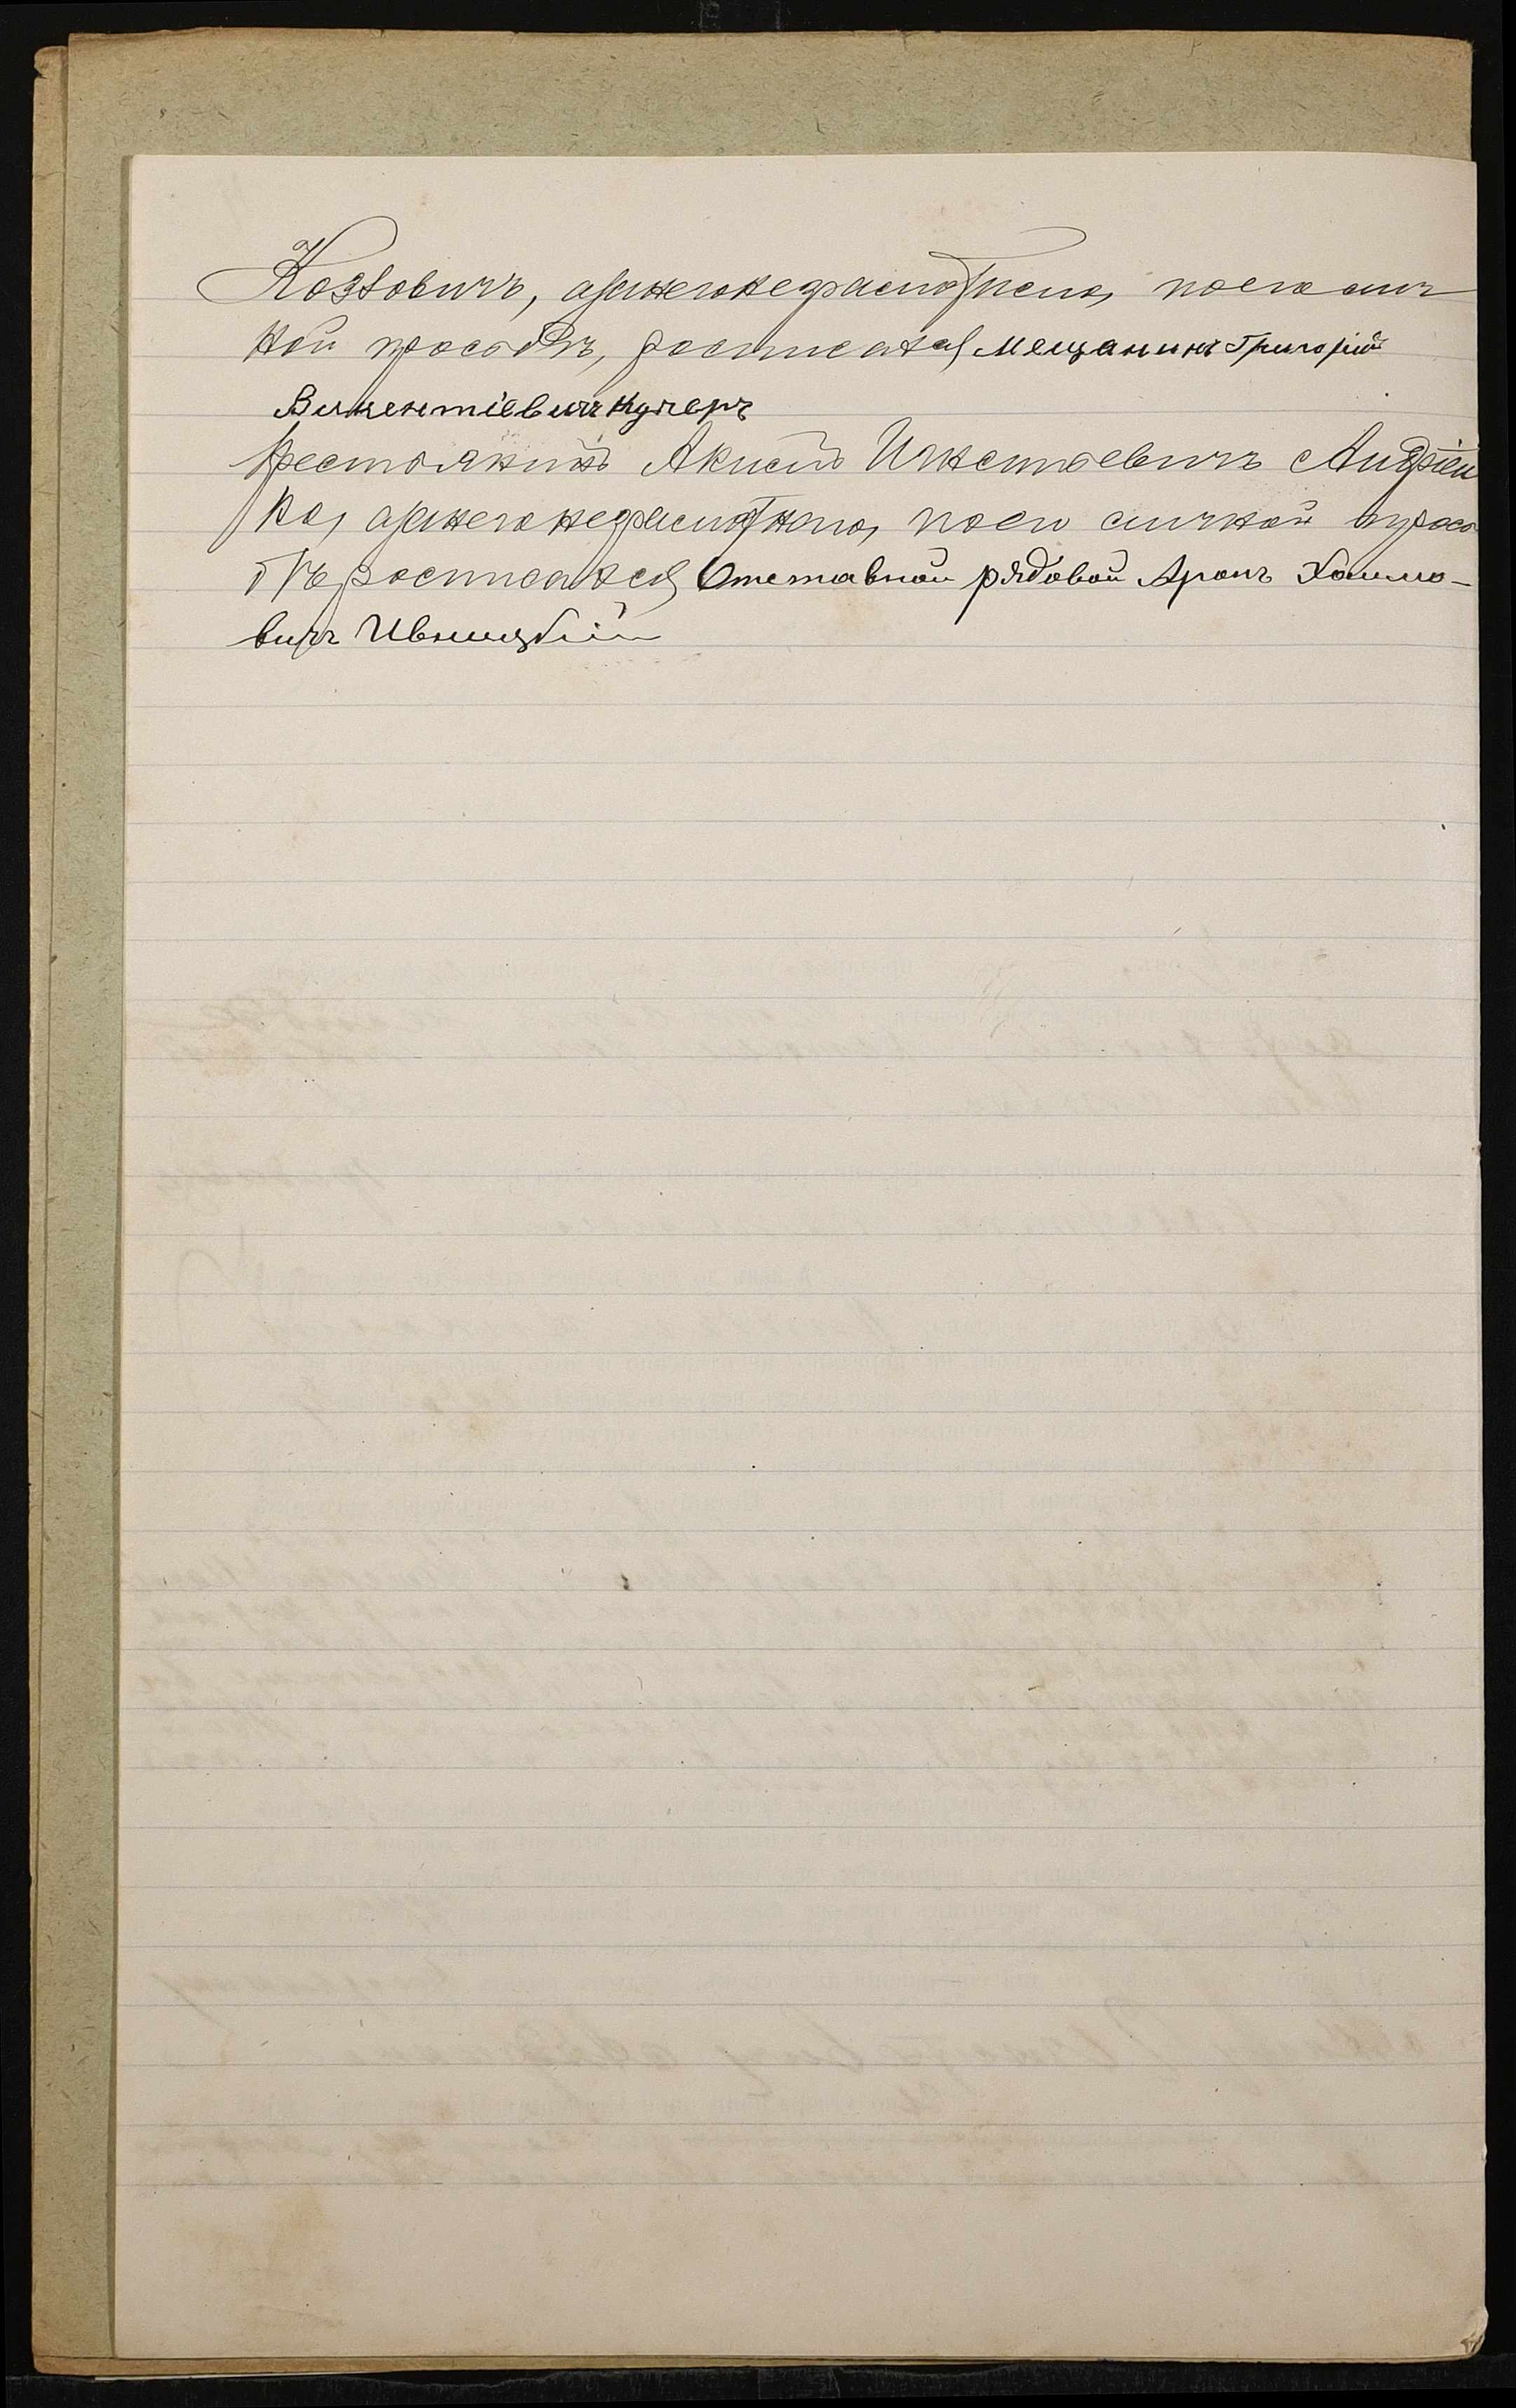 Козловичъ, а за него неграмотнаго, по его лич
ной просьбѣ, росписался мещанинъ Григорій
Викентіевичъ Кучеръ
Крестьянинъ Акимъ Игнатьевичъ Андрієн
ко, а за него неграмотнаго, по его личной прось
бѣ росписался Отставной рядовой Аронъ Хаимо-
вичъ Ивницкій